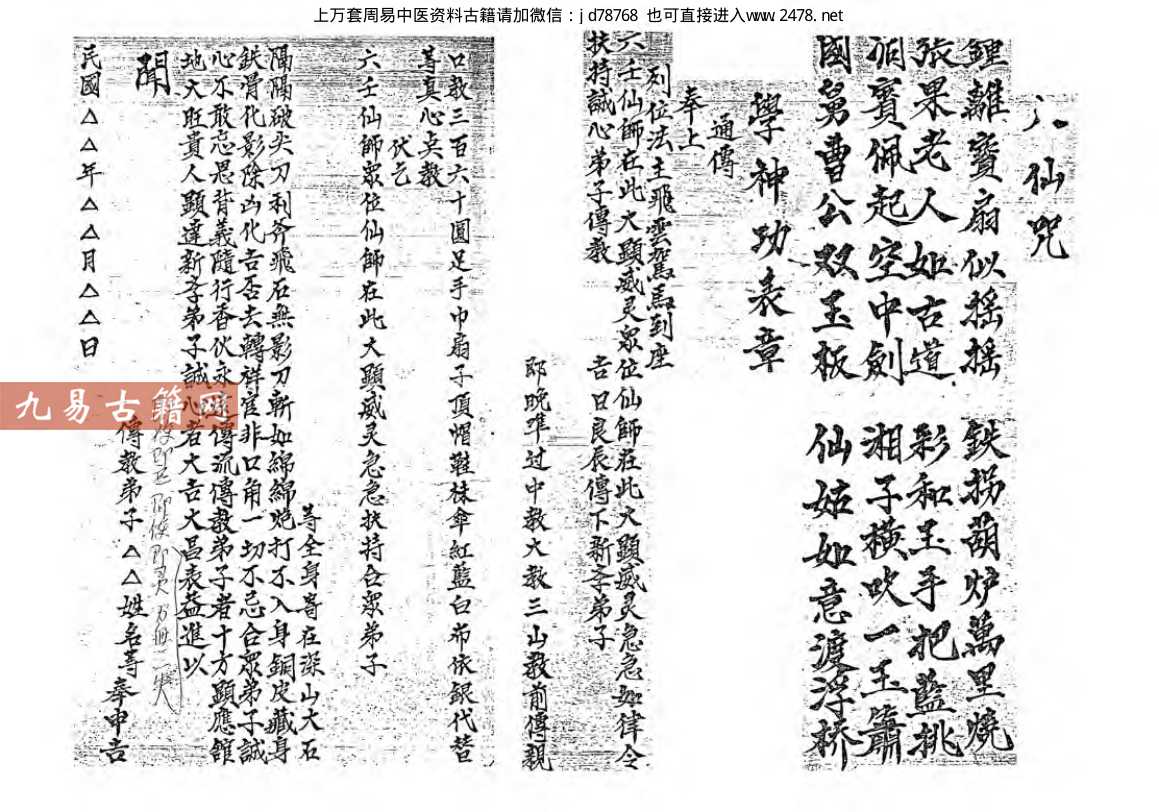 上万套周易中医资料古籍请加微信：jd78768 也可直接进入www.2478.net
八仙咒
鍾離寶扇似搖搖 鉄拐葫炉萬里燒
張果老人如古道 彩和玉手把藍挑
洞賓佩起空中劍 湘子橫吹一玉簫
國舅曹公双玉板 仙姑如意渡浮桥
學神功表章
通傳
奉上
列位法主飛雲駕馬到座
六壬仙師在此大顯威灵眾位仙師在此大顯威灵急急如律令
扶持誠心弟子傳教 吉日良辰傳下新李弟子
郎晚準过中教大教三山教前傳親
口教三百六十圓足手巾扇子頂帽鞋袜傘紅藍白布依銀代替
等真心央教
伏乞
六壬仙師眾位仙師在此大顯威灵急急扶持合眾弟子
等全身寄在深山大石
陽陽破尖刀利斧飛石無影刀斬如綿綿炮打不入身銅皮藏身
鉄骨化影除凶化吉否去轉祥官非口角一切不忌合眾弟子誠
心不敢忘恩背義隨行香伙永遠傳流傳教弟子者十方顯應館
地大旺貴人顯達新李弟子誠心者大吉大昌表益進以
聞
傳教弟子△△姓名等奉申吉
民國△△年△△月△△日
九易古籍网